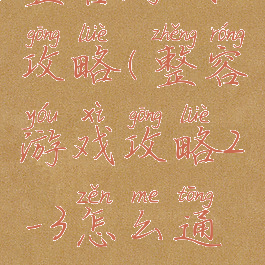 gōng lüè zhěng róng
攻略(整容
yóu xì gōng lüè
游戏攻略2
zěn me tōng
-3怎么通